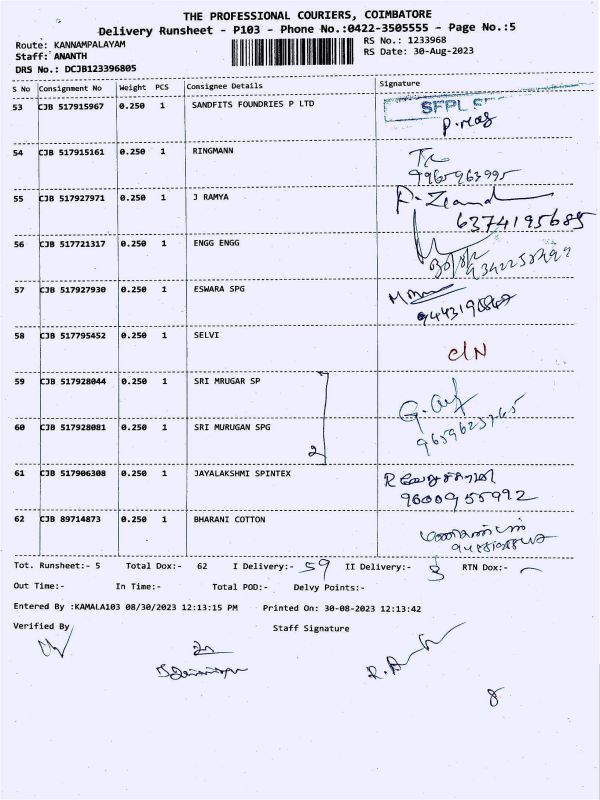 THE PROFESSIONAL COURIERS, COIMBATORE
Delivery Runsheet - P103 - Phone No.:0422-3505555 - Page No.:5
Route: KANNAMPALAYAM RS No.: 1233968
Staff: ANANTH RS Date: 30-Aug-2023
DRS No.: DCJB123396805
S No Consignment No Weight PCS Consignee Details Signature
53 CJB 517915967 0.250 1 SANDFITS FOUNDRIES P LTD SFPL
54 CJB 517915161 0.250 1 RINGMANN
9965963995
55 CJB 517927971 0.250 1 J RAMYA
6374195685
56 CJB 517721317 0.250 1 ENGG ENGG
57 CJB 517927930 0.250 1 ESWARA SPG
58 CJB 517795452 0.250 1 SELVI
C/N
59 CJB 517928044 0.250 1 SRI MRUGAR SP
60 CJB 517928081 0.250 1 SRI MURUGAN SPG
2
61 CJB 517906308 0.250 1 JAYALAKSHMI SPINTEX
9600955992
62 CJB 89714873 0.250 1 BHARANI COTTON
Tot. Runsheet:- 5 Total Dox:- 62 I Delivery:- 59 II Delivery:- 3 RTN Dox:- -
Out Time:- In Time:- Total POD:- Delvy Points:-
Entered By :KAMALA103 08/30/2023 12:13:15 PM Printed On: 30-08-2023 12:13:42
Verified By Staff Signature
8